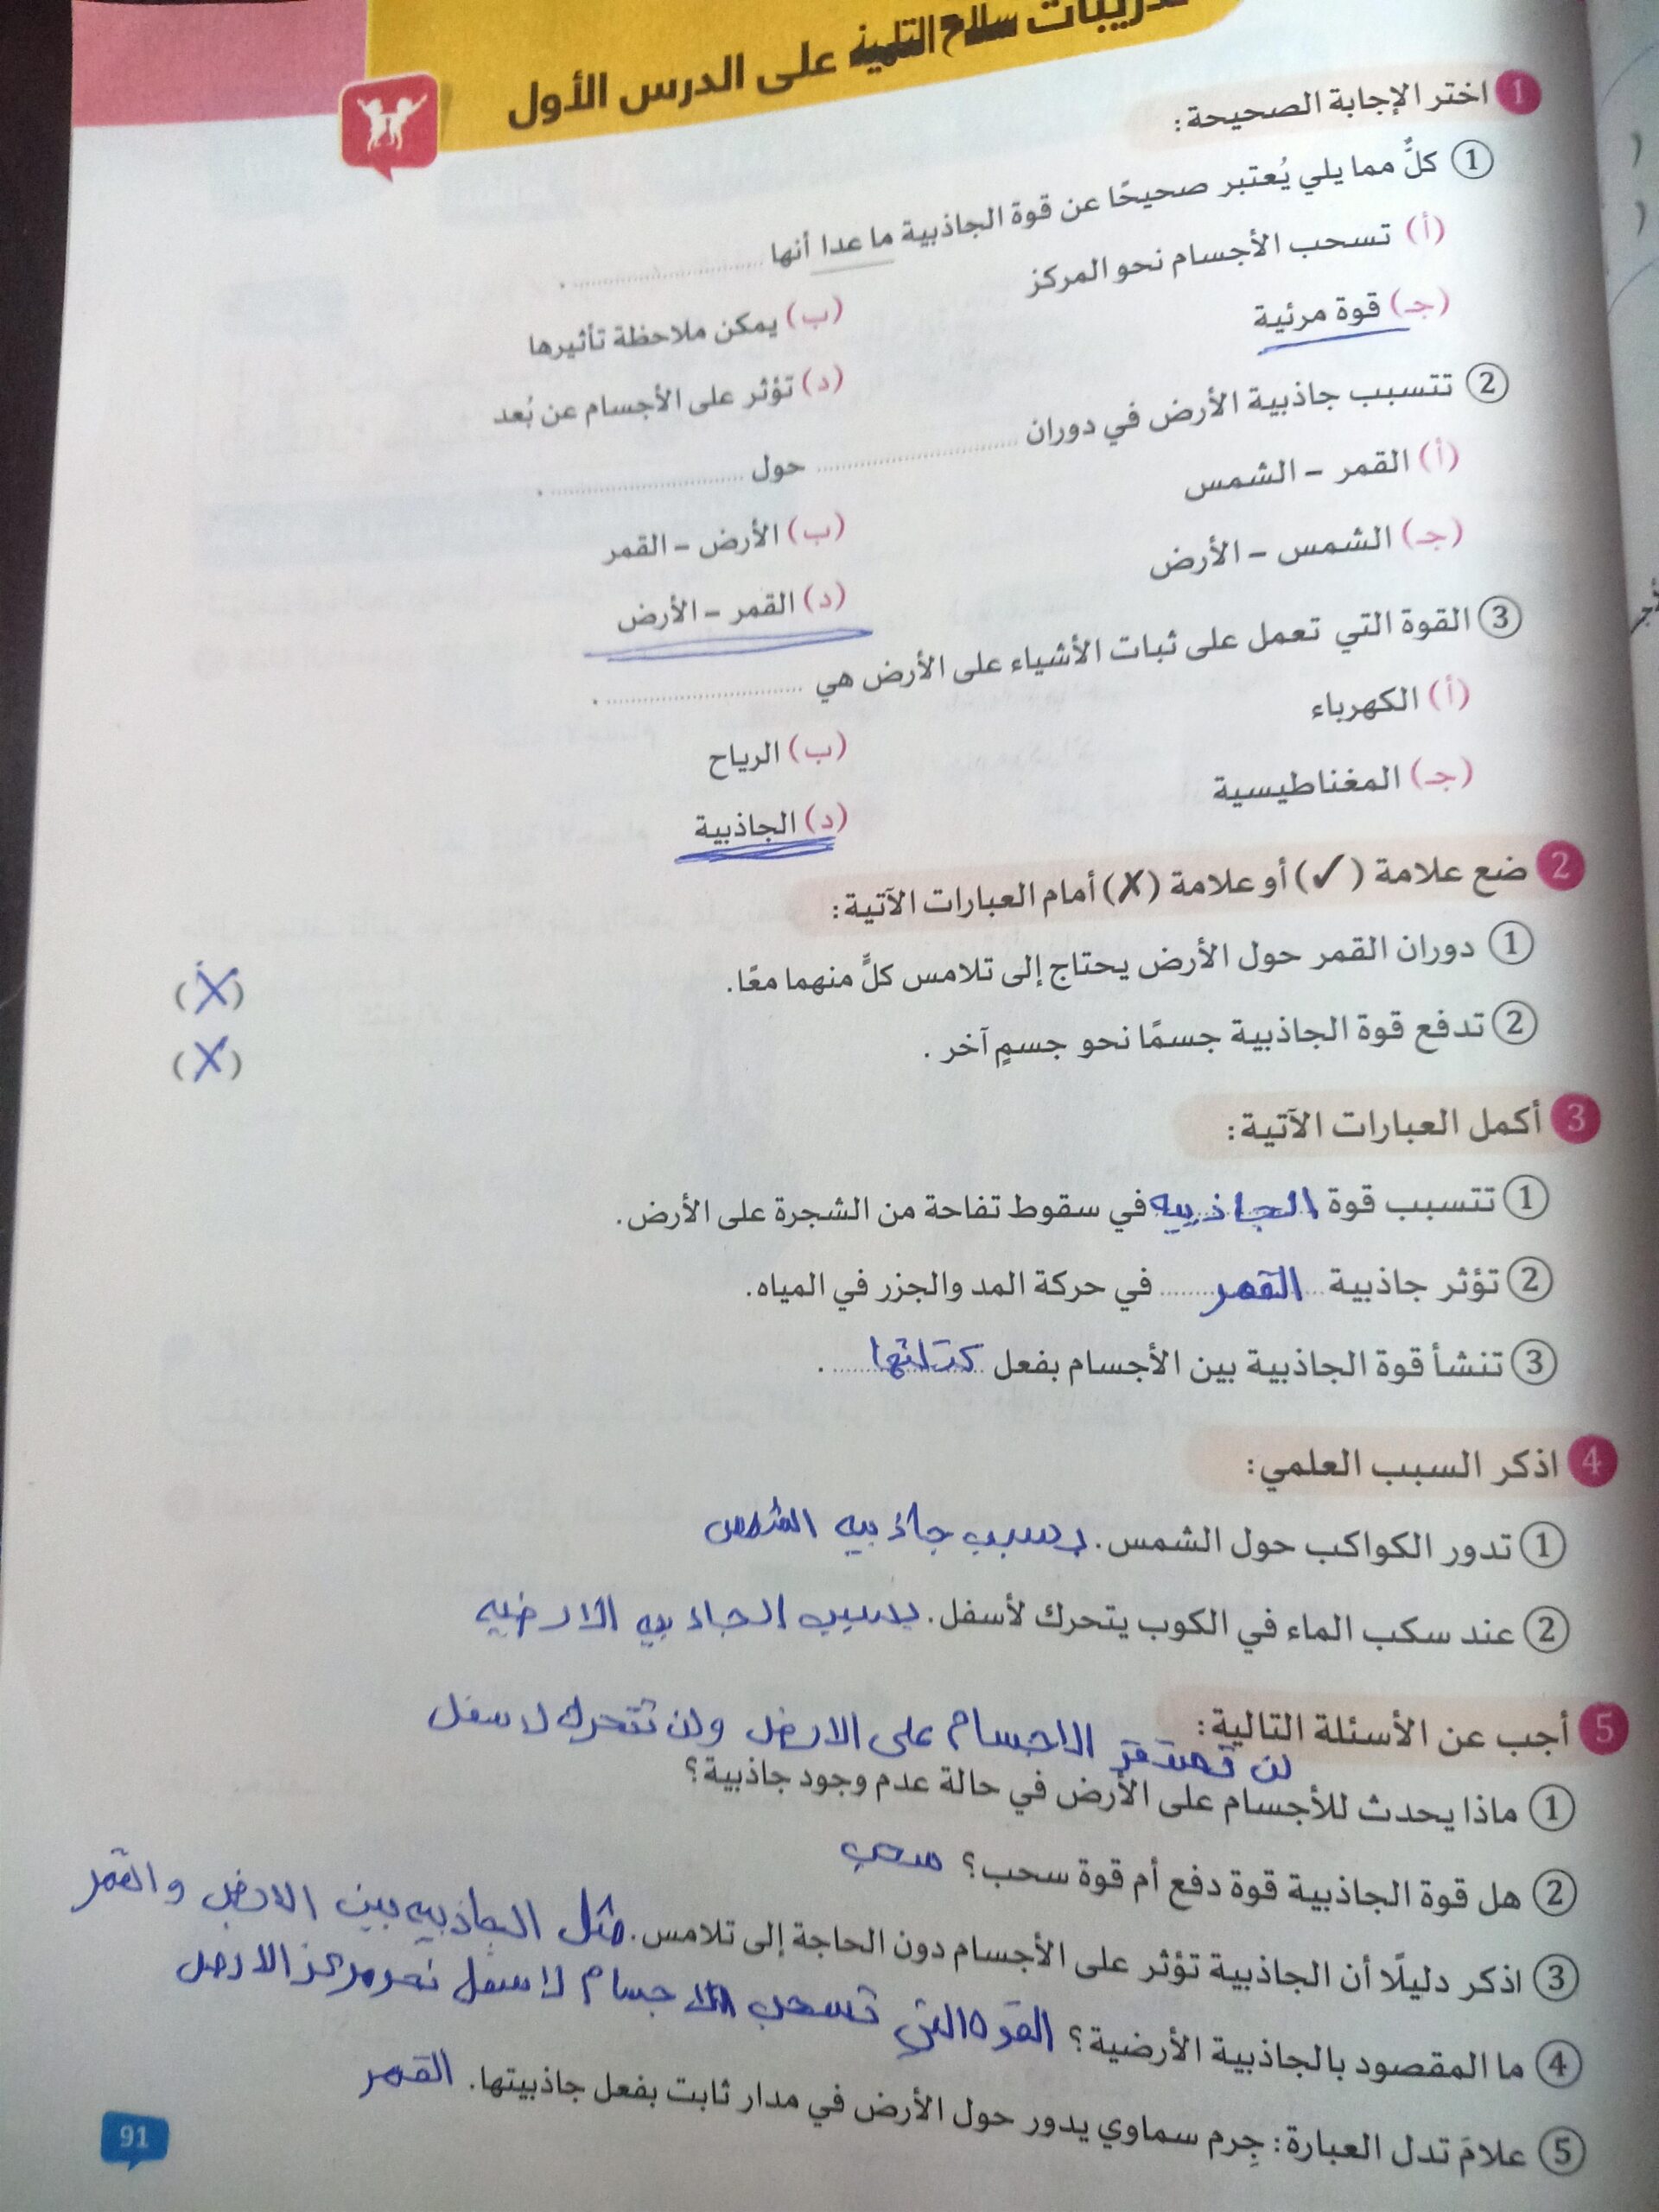 تدريبات سلاح التلميذ على الدرس الأول
1 اختر الإجابة الصحيحة:
1 كلٌّ مما يلي يُعتبر صحيحًا عن قوة الجاذبية ما عدا أنها ........................ .
(أ) تسحب الأجسام نحو المركز
(ب) يمكن ملاحظة تأثيرها
(جـ) قوة مرئية
(د) تؤثر على الأجسام عن بُعد
2 تتسبب جاذبية الأرض في دوران ........................ حول ........................ .
(أ) القمر – الشمس
(ب) الأرض – القمر
(جـ) الشمس – الأرض
(د) القمر – الأرض
3 القوة التي تعمل على ثبات الأشياء على الأرض هي ........................ .
(أ) الكهرباء
(ب) الرياح
(جـ) المغناطيسية
(د) الجاذبية
2 ضع علامة (✓) أو علامة (✗) أمام العبارات الآتية:
1 دوران القمر حول الأرض يحتاج إلى تلامس كلٍّ منهما معًا. (X)
2 تدفع قوة الجاذبية جسمًا نحو جسمٍ آخر . (X)
3 أكمل العبارات الآتية:
1 تتسبب قوة الجاذبيه في سقوط تفاحة من الشجرة على الأرض.
2 تؤثر جاذبية القمر في حركة المد والجزر في المياه.
3 تنشأ قوة الجاذبية بين الأجسام بفعل كتلتها .
4 اذكر السبب العلمي:
1 تدور الكواكب حول الشمس. بسبب جاذبيه الشمس
2 عند سكب الماء في الكوب يتحرك لأسفل. بسبب الجاذبيه الارضيه
5 أجب عن الأسئلة التالية:
لن تستقر الاجسام على الارض ولن تتحرك لاسفل
1 ماذا يحدث للأجسام على الأرض في حالة عدم وجود جاذبية؟
2 هل قوة الجاذبية قوة دفع أم قوة سحب؟ سحب
3 اذكر دليلًا أن الجاذبية تؤثر على الأجسام دون الحاجة إلى تلامس. مثل الجاذبيه بين الارض والقمر
4 ما المقصود بالجاذبية الأرضية؟ القوه التي تسحب الاجسام لاسفل نحو مركز الارض
5 علامَ تدل العبارة: جِرم سماوي يدور حول الأرض في مدار ثابت بفعل جاذبيتها. القمر
91